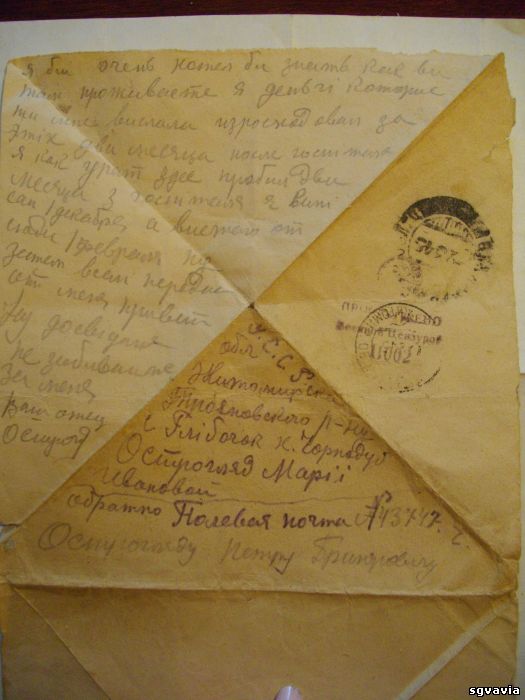 я би очень хотел би знать как ви
там проживаете я деньгі которие
ти мне вислала израсходовал за
этіх два месяца после госпиталя
я как раз здес пробил два
месяца з госпиталя я випі
сан 1 декабря а виехал от
сюда 1 февраля ну
затем всем передай
от меня привет
ну досвідання
не забивайте
за меня
Ваш отец
Остроглд
У.С.С.Р.
обл Житомирск
Трояновского р-на
с Глібочок х. Чорподуб
Острогляд Маріі
Ивановой
обратно Полевая почта № 43747. г.
Остроглядu Петру Григровичу
ПРОСМОТРЕНО
Военной Цензурой
11002
sgvavia